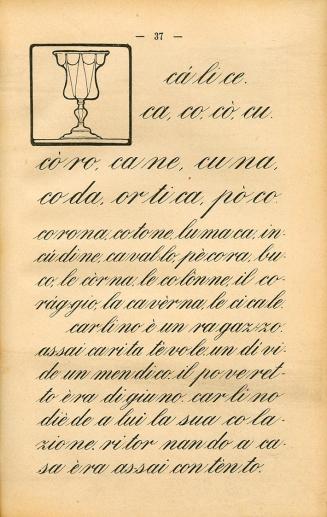 — 37 —
cálice.
ca, co, cò, cu.
còro, cane, cuna,
coda, ortica, pòco.
corona, cotone, lumaca, in-
cúdine, cavallo, pècora, bu-
co, le còrna, le colònne, il co-
ràggio, la cavèrna, le cicale.
carlino è un ragazzo
assai caritatévole. un dì vi-
de un mendico. il poveret-
to èra digiuno. carlino
diède a lui la sua cola-
zione. ritornando a ca-
sa èra assai contènto.